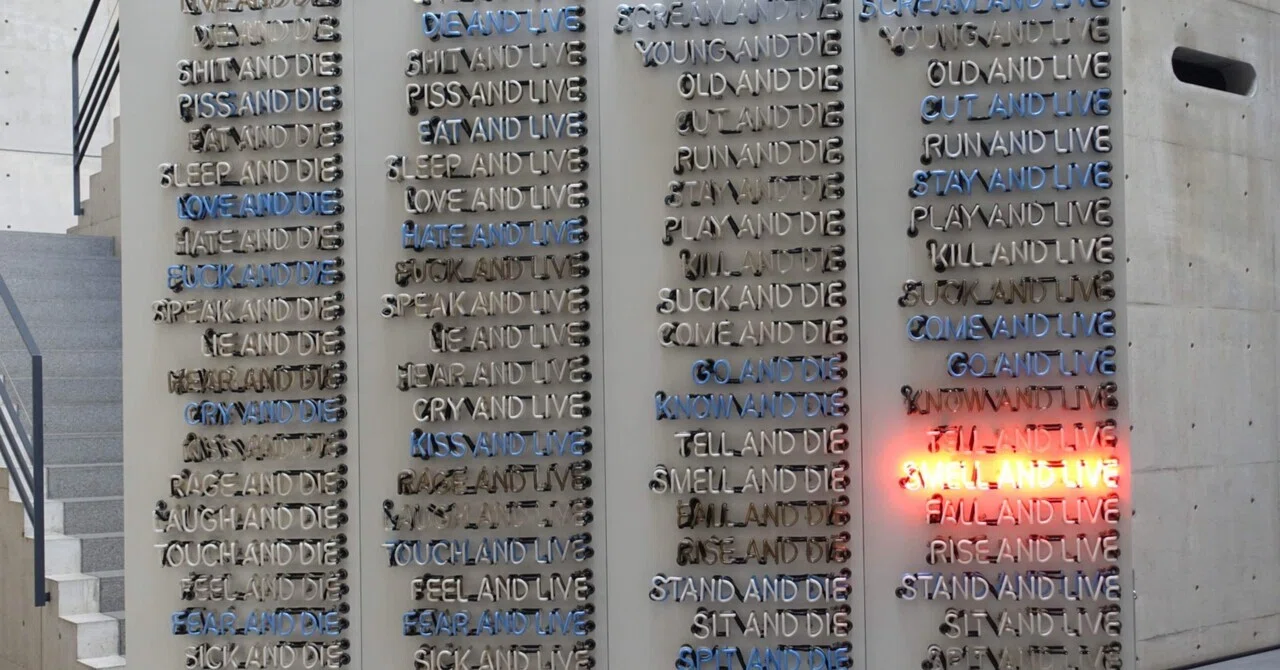 LIVE AND DIE
DIE AND DIE
SHIT AND DIE
PISS AND DIE
EAT AND DIE
SLEEP AND DIE
LOVE AND DIE
HATE AND DIE
FUCK AND DIE
SPEAK AND DIE
LIE AND DIE
HEAR AND DIE
CRY AND DIE
KISS AND DIE
RAGE AND DIE
LAUGH AND DIE
TOUCH AND DIE
FEEL AND DIE
FEAR AND DIE
SICK AND DIE
DIE AND LIVE
SHIT AND LIVE
PISS AND LIVE
EAT AND LIVE
SLEEP AND LIVE
LOVE AND LIVE
HATE AND LIVE
FUCK AND LIVE
SPEAK AND LIVE
LIE AND LIVE
HEAR AND LIVE
CRY AND LIVE
KISS AND LIVE
RAGE AND LIVE
LAUGH AND LIVE
TOUCH AND LIVE
FEEL AND LIVE
FEAR AND LIVE
SICK AND LIVE
SCREAM AND DIE
YOUNG AND DIE
OLD AND DIE
CUT AND DIE
RUN AND DIE
STAY AND DIE
PLAY AND DIE
KILL AND DIE
SUCK AND DIE
COME AND DIE
GO AND DIE
KNOW AND DIE
TELL AND DIE
SMELL AND DIE
FALL AND DIE
RISE AND DIE
STAND AND DIE
SIT AND DIE
SPIT AND DIE
SCREAM AND LIVE
YOUNG AND LIVE
OLD AND LIVE
CUT AND LIVE
RUN AND LIVE
STAY AND LIVE
PLAY AND LIVE
KILL AND LIVE
SUCK AND LIVE
COME AND LIVE
GO AND LIVE
KNOW AND LIVE
TELL AND LIVE
SMELL AND LIVE
FALL AND LIVE
RISE AND LIVE
STAND AND LIVE
SIT AND LIVE
SPIT AND LIVE